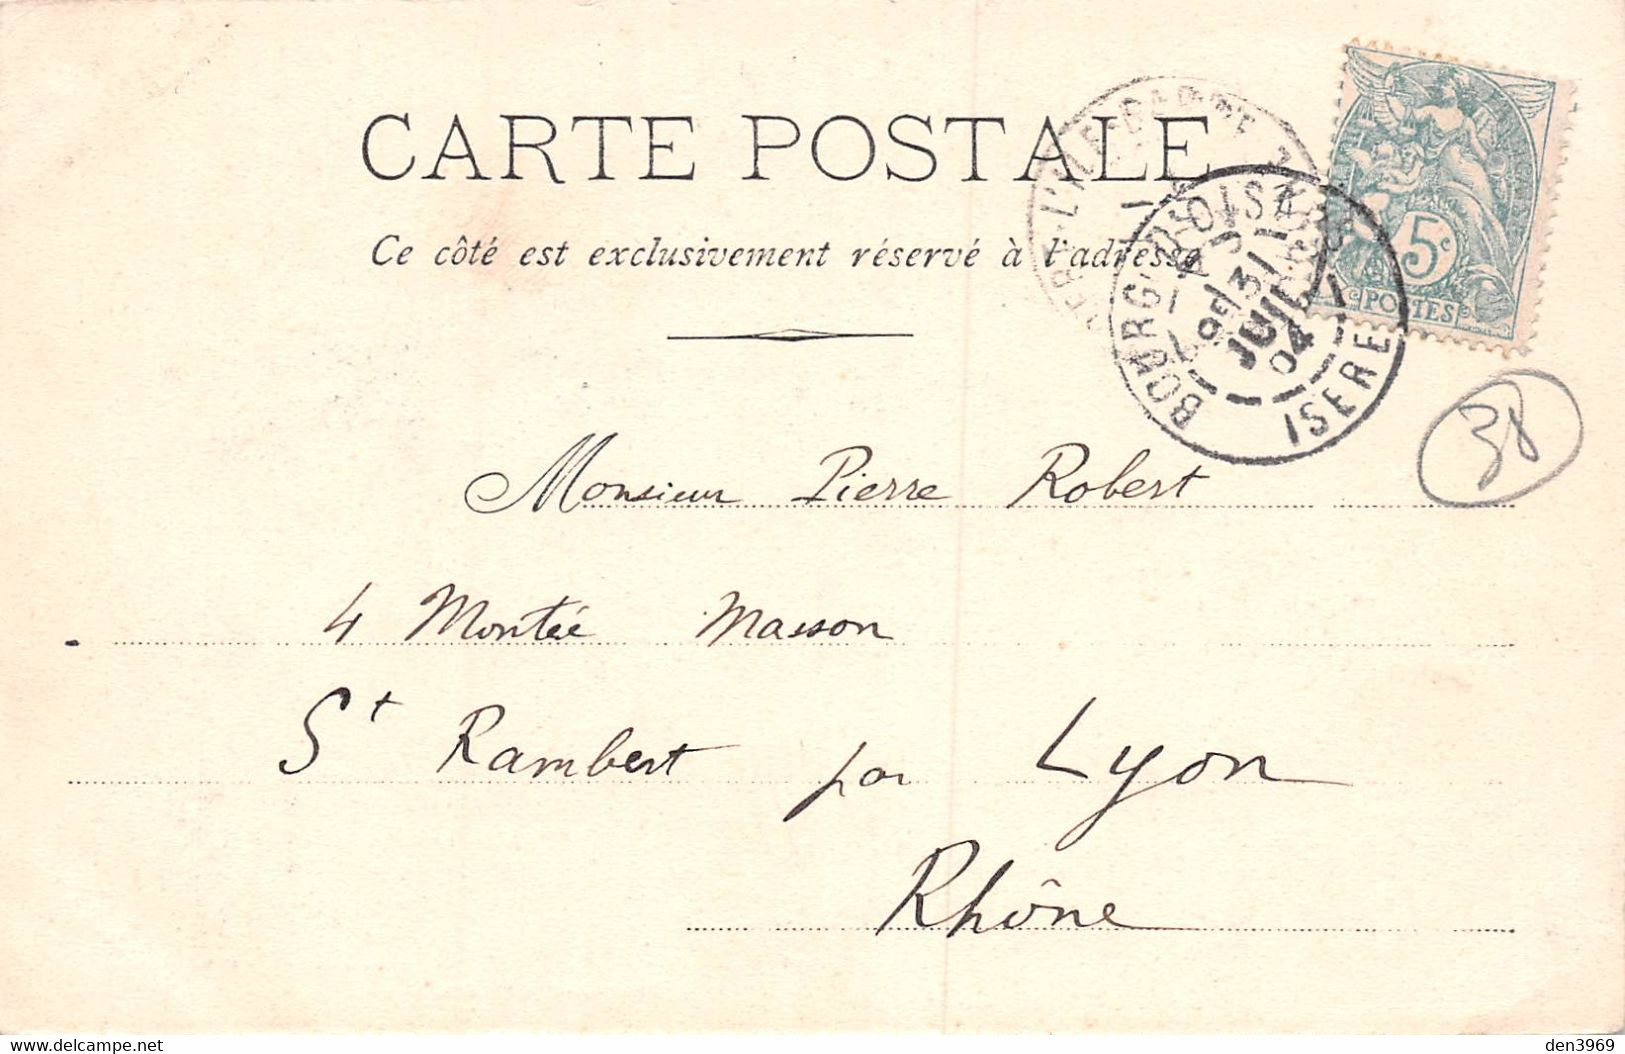 CARTE POSTALE
Ce côté est exclusivement réservé à l'adresse
5c
POSTES
BOURG-D'OISANS
31
JUIL
04
ISERE
38
Monsieur Pierre Robert
4 Montée Masson
St Rambert par Lyon
Rhône
den3969